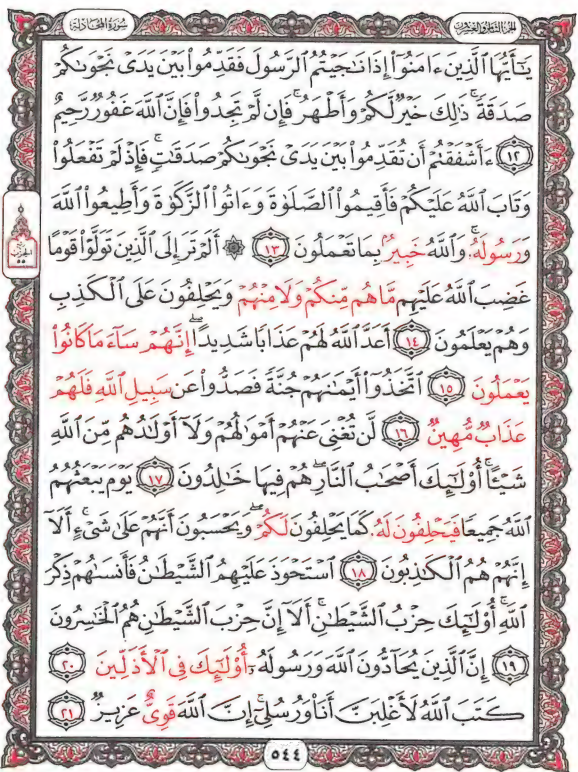 الجزء الثامن والعشرون
سورة المجادلة
يَـٰٓأَيُّهَا ٱلَّذِينَ ءَامَنُوٓاْ إِذَا نَـٰجَيْتُمُ ٱلرَّسُولَ فَقَدِّمُواْ بَيْنَ يَدَىْ نَجْوَىٰكُمْ
صَدَقَةًۚ ذَٰلِكَ خَيْرٌ لَّكُمْ وَأَطْهَرُۚ فَإِن لَّمْ تَجِدُواْ فَإِنَّ ٱللَّهَ غَفُورٌ رَّحِيمٌ
١٢ ءَأَشْفَقْتُمْ أَن تُقَدِّمُواْ بَيْنَ يَدَىْ نَجْوَىٰكُمْ صَدَقَـٰتٍۚ فَإِذْ لَمْ تَفْعَلُواْ
وَتَابَ ٱللَّهُ عَلَيْكُمْ فَأَقِيمُواْ ٱلصَّلَوٰةَ وَءَاتُواْ ٱلزَّكَوٰةَ وَأَطِيعُواْ ٱللَّهَ
وَرَسُولَهُۥۚ وَٱللَّهُ خَبِيرٌۢ بِمَا تَعْمَلُونَ ١٣ ۞ أَلَمْ تَرَ إِلَى ٱلَّذِينَ تَوَلَّوْاْ قَوْمًا
غَضِبَ ٱللَّهُ عَلَيْهِم مَّا هُم مِّنكُمْ وَلَا مِنْهُمْ وَيَحْلِفُونَ عَلَى ٱلْكَذِبِ
وَهُمْ يَعْلَمُونَ ١٤ أَعَدَّ ٱللَّهُ لَهُمْ عَذَابًا شَدِيدًاۖ إِنَّهُمْ سَآءَ مَا كَانُواْ
يَعْمَلُونَ ١٥ ٱتَّخَذُوٓاْ أَيْمَـٰنَهُمْ جُنَّةً فَصَدُّواْ عَن سَبِيلِ ٱللَّهِ فَلَهُمْ
عَذَابٌ مُّهِينٌ ١٦ لَّن تُغْنِىَ عَنْهُمْ أَمْوَٰلُهُمْ وَلَآ أَوْلَـٰدُهُم مِّنَ ٱللَّهِ
شَيْـًٔاۚ أُوْلَـٰٓئِكَ أَصْحَـٰبُ ٱلنَّارِۖ هُمْ فِيهَا خَـٰلِدُونَ ١٧ يَوْمَ يَبْعَثُهُمُ
ٱللَّهُ جَمِيعًا فَيَحْلِفُونَ لَهُۥ كَمَا يَحْلِفُونَ لَكُمْۖ وَيَحْسَبُونَ أَنَّهُمْ عَلَىٰ شَىْءٍۚ أَلَآ
إِنَّهُمْ هُمُ ٱلْكَـٰذِبُونَ ١٨ ٱسْتَحْوَذَ عَلَيْهِمُ ٱلشَّيْطَـٰنُ فَأَنسَىٰهُمْ ذِكْرَ
ٱللَّهِۚ أُوْلَـٰٓئِكَ حِزْبُ ٱلشَّيْطَـٰنِۚ أَلَآ إِنَّ حِزْبَ ٱلشَّيْطَـٰنِ هُمُ ٱلْخَـٰسِرُونَ
١٩ إِنَّ ٱلَّذِينَ يُحَآدُّونَ ٱللَّهَ وَرَسُولَهُۥٓ أُوْلَـٰٓئِكَ فِى ٱلْأَذَلِّينَ ٢٠
كَتَبَ ٱللَّهُ لَأَغْلِبَنَّ أَنَا۠ وَرُسُلِىٓۚ إِنَّ ٱللَّهَ قَوِىٌّ عَزِيزٌ ٢١
٥٤٤